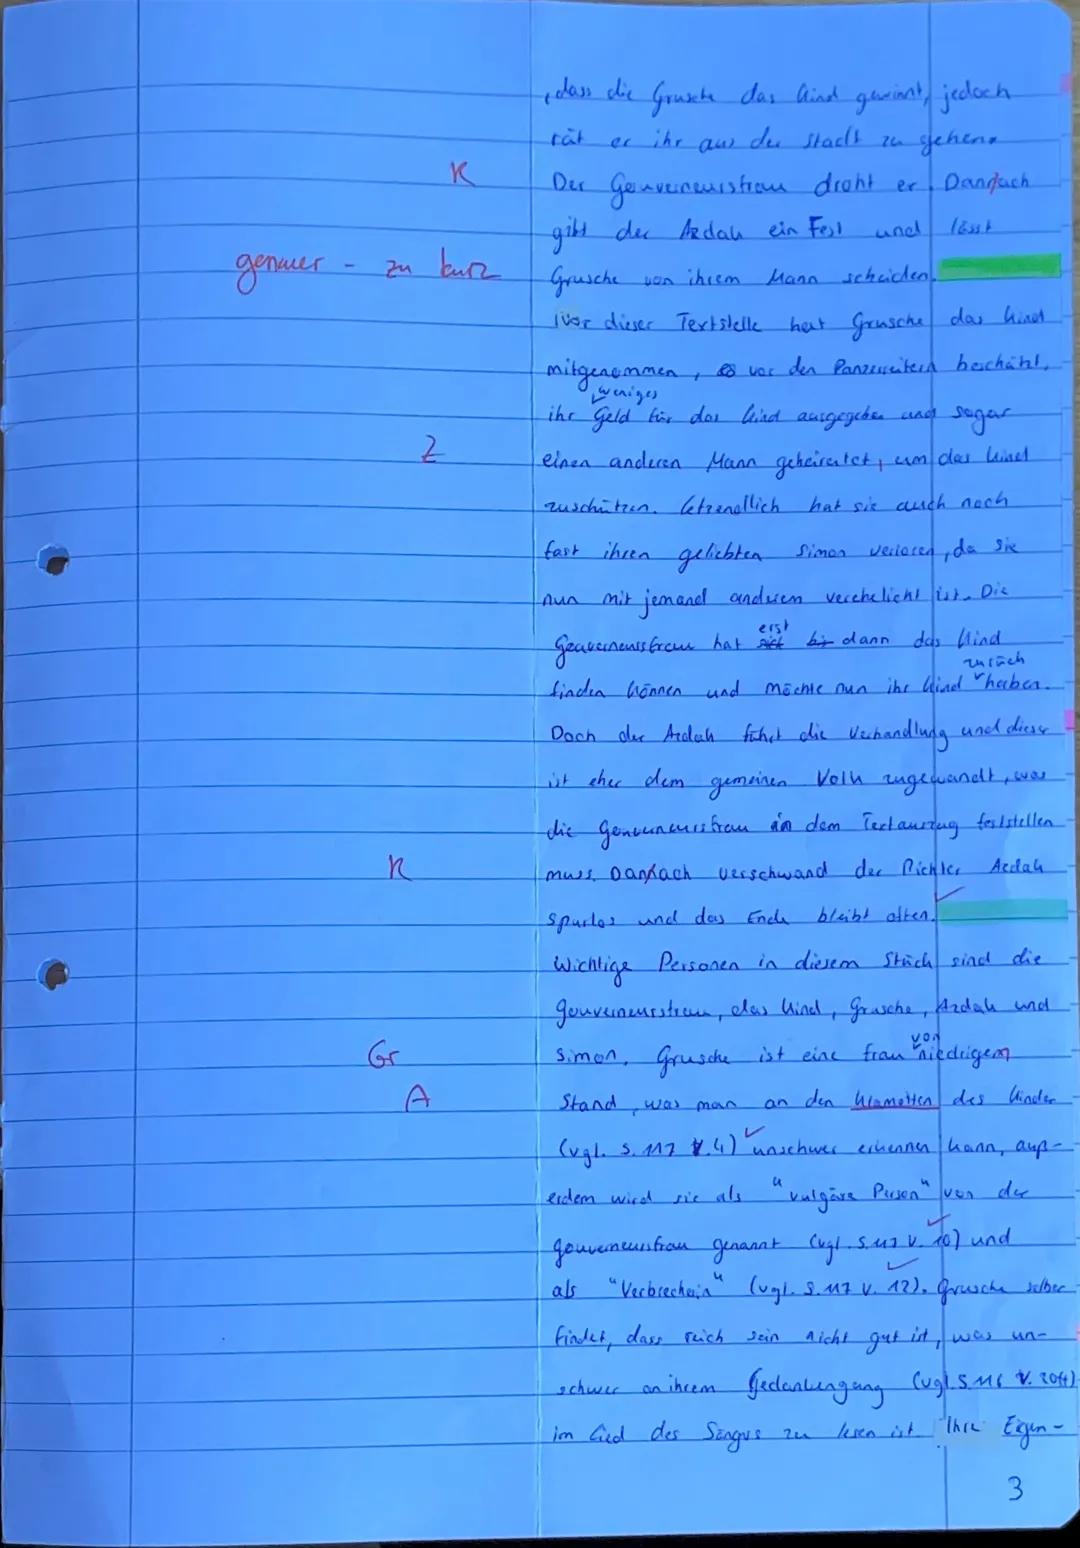 , dass die Grusche das Kind gewinnt, jedoch
rät er ihr aus der Stadt zu gehen.
K
Der Gouverneursfrau droht er. Dannach
gibt der Azdak ein Fest und lässt
genauer - zu kurz
Grusche von ihrem Mann scheiden.
Vor dieser Textstelle hat Grusche das Kind
mitgenommen, vor den Panzerreitern beschützt,
weniges
ihr Geld für das Kind ausgegeben und sogar
Z
einen anderen Mann geheiratet, um das Kind
zuschützen. Letzendlich hat sie auch noch
fast ihren geliebten Simon verloren, da sie
nun mit jemand anderem verehelicht ist. Die
erst
Gouverneursfrau hat bis dann das Kind
zurück
finden können und möchte nun ihr Kind haben.
Doch der Azdak führt die Verhandlung und dieser
ist eher dem gemeinen Volk zugewandt, was
die Gouverneursfrau in dem Textauszug feststellen
R
muss. Dannach verschwand der Richter Azdak
spurlos und das Ende bleibt offen.
Wichtige Personen in diesem Stück sind die
Gouverneursfrau, das Kind, Grusche, Azdak und
von
Gr
Simon. Grusche ist eine Frau niedrigem
A
Stand, was man an den Klamotten des Kindes
(vgl. S. 117 V. 4) unschwer erkennen kann, auß-
erdem wird sie als "vulgäre Person" von der
Gouverneursfrau genannt (vgl. S. 117 V. 10) und
als "Verbrecherin" (vgl. S. 117 V. 12). Grusche selber
findet, dass reich sein nicht gut ist, was un-
schwer an ihrem Gedankengang (vgl. S. 116 V. 20ff)
im Lied des Sängers zu lesen ist. Ihre Eigen-
3